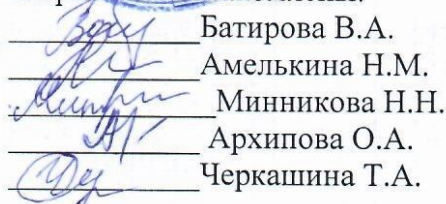 Батирова В.А.
Амелькина Н.М.
Минникова Н.Н.
Архипова О.А.
Черкашина Т.А.